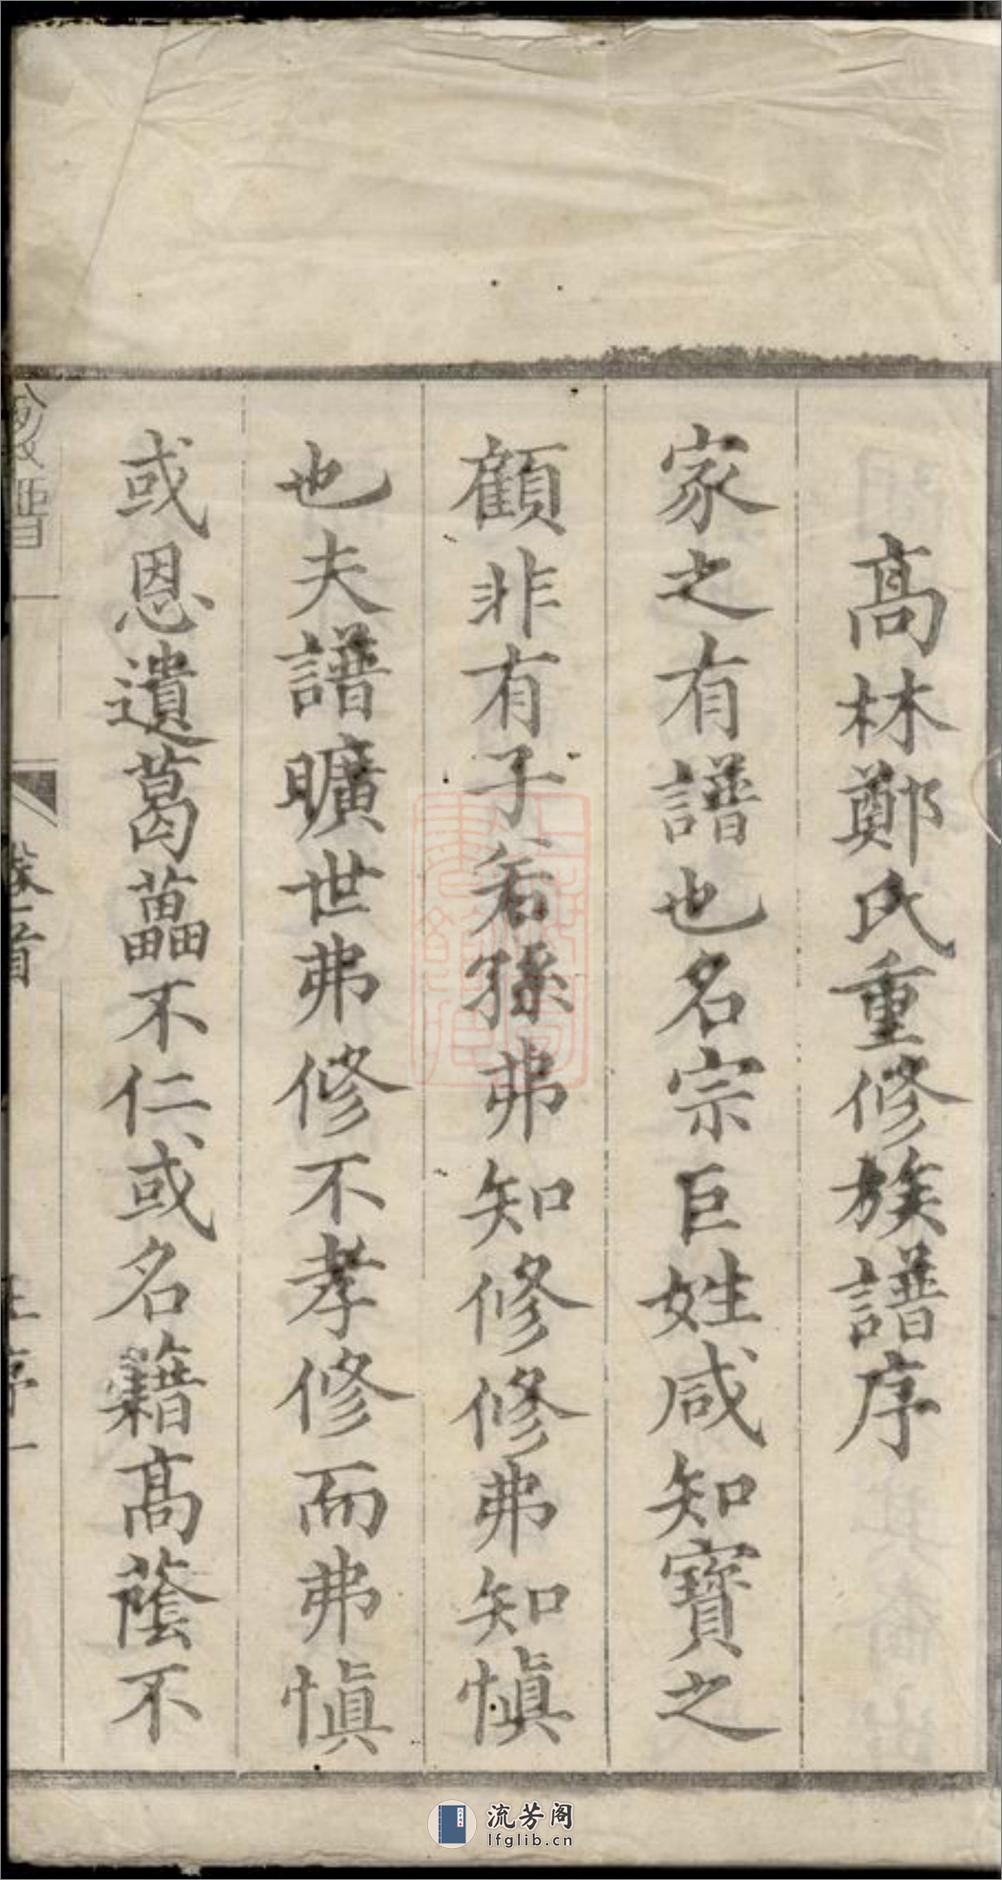 高林鄭氏重修族譜序
家之有譜也名宗巨姓咸知寶之
顧非有子若孫弗知修修弗知慎
也夫譜曠世弗修不孝修而弗慎
或恩遺葛藟不仁或名籍高蔭不
卷首
序一
流芳阁
lfglib.cn